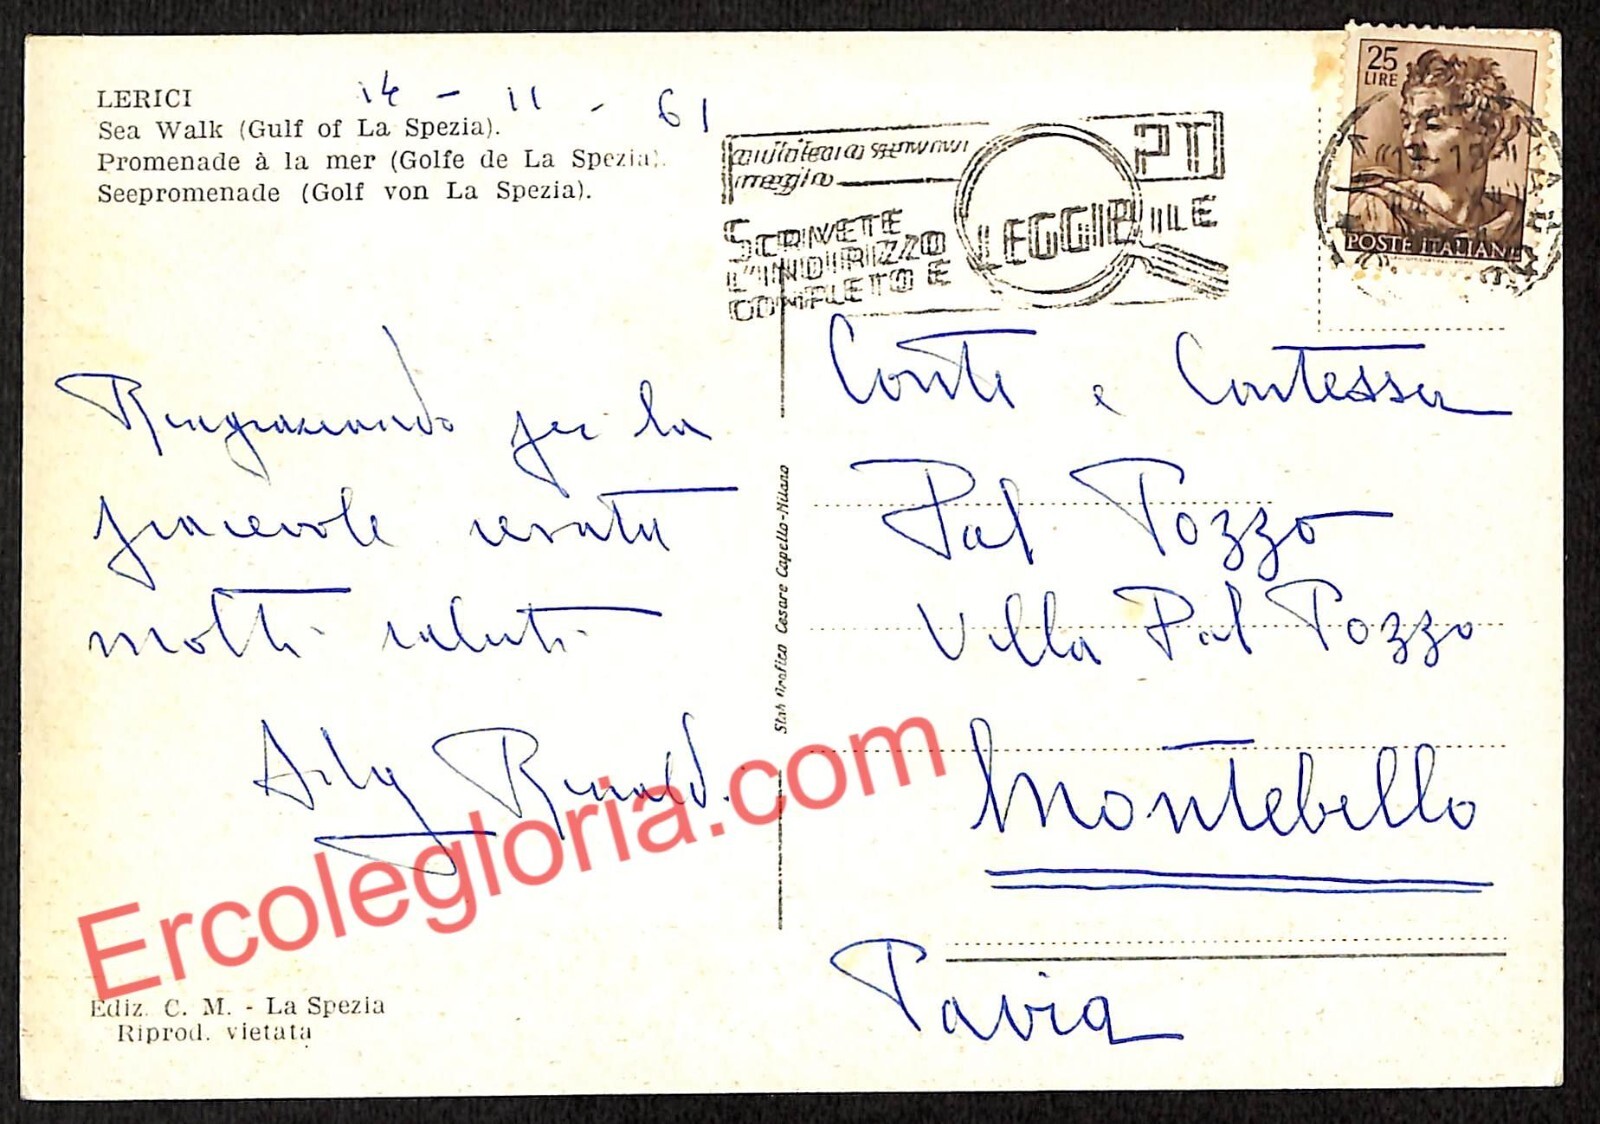 LERICI
14 - 11 - 61
Sea Walk (Gulf of La Spezia).
Promenade à la mer (Golfe de La Spezia).
Seepromenade (Golf von La Spezia).
PT
SCRIVETE
L'INDIRIZZO
COMPLETO E LEGGIBILE
25
LIRE
POSTE ITALIANE
Ringraziando per la
piacevole serata
molti saluti
Rinaldi
Conte e Contessa
Dal Pozzo
Villa Dal Pozzo
Montebello
Pavia
Stab Grafico Cesare Capello-Milano
Ediz. C. M. - La Spezia
Riprod. vietata
Ercolegloria.com